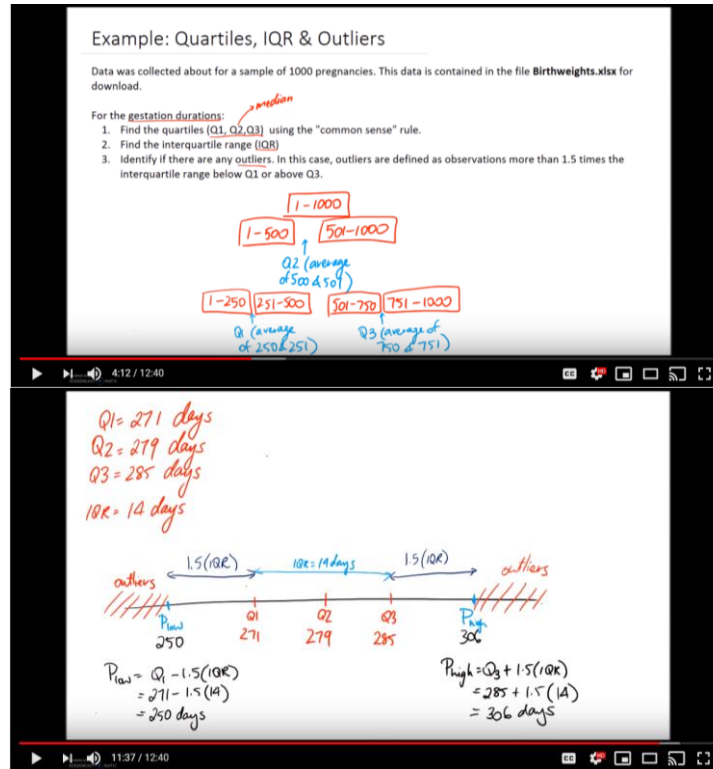 Example: Quartiles, IQR & Outliers
Data was collected about for a sample of 1000 pregnancies. This data is contained in the file Birthweights.xlsx for
download.
median
For the gestation durations:
1. Find the quartiles (Q1, Q2,Q3) using the "common sense" rule.
2. Find the interquartile range (IQR)
3. Identify if there are any outliers. In this case, outliers are defined as observations more than 1.5 times the
interquartile range below Q1 or above Q3.
1-1000
1-500 501-1000
Q2 (average
of 500 & 501)
1-250 251-500 501-750 751-1000
Q1 (average Q3 (average of
of 250 & 251) 750 & 751)
4:12 / 12:40
CC HD
Q1= 271 days
Q2= 279 days
Q3 = 285 days
IQR= 14 days
1.5(IQR) IQR=14days 1.5(IQR)
outliers outliers
Plow Q1 Q2 Q3 Phigh
250 271 279 285 306
Plow = Q1 - 1.5(IQR) Phigh = Q3 + 1.5(IQR)
= 271 - 1.5(14) = 285 + 1.5(14)
= 250 days = 306 days
11:37 / 12:40
CC HD